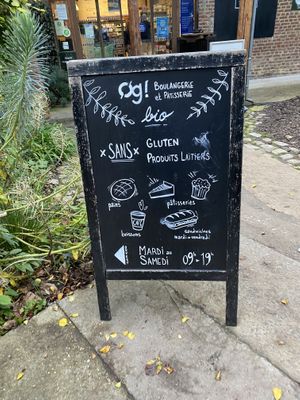 Øg! BOULANGERIE
ET PÂTISSERIE
bio
×SANS× GLUTEN
PRODUITS LAITIERS
pains
pâtisseries
boissons
sandwiches
mardi au vendredi
MARDI AU
SAMEDI 09h-19h